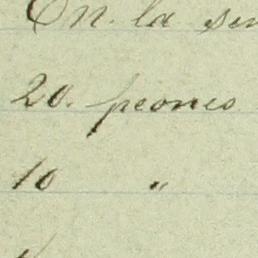 En. la
20. peones
10 "